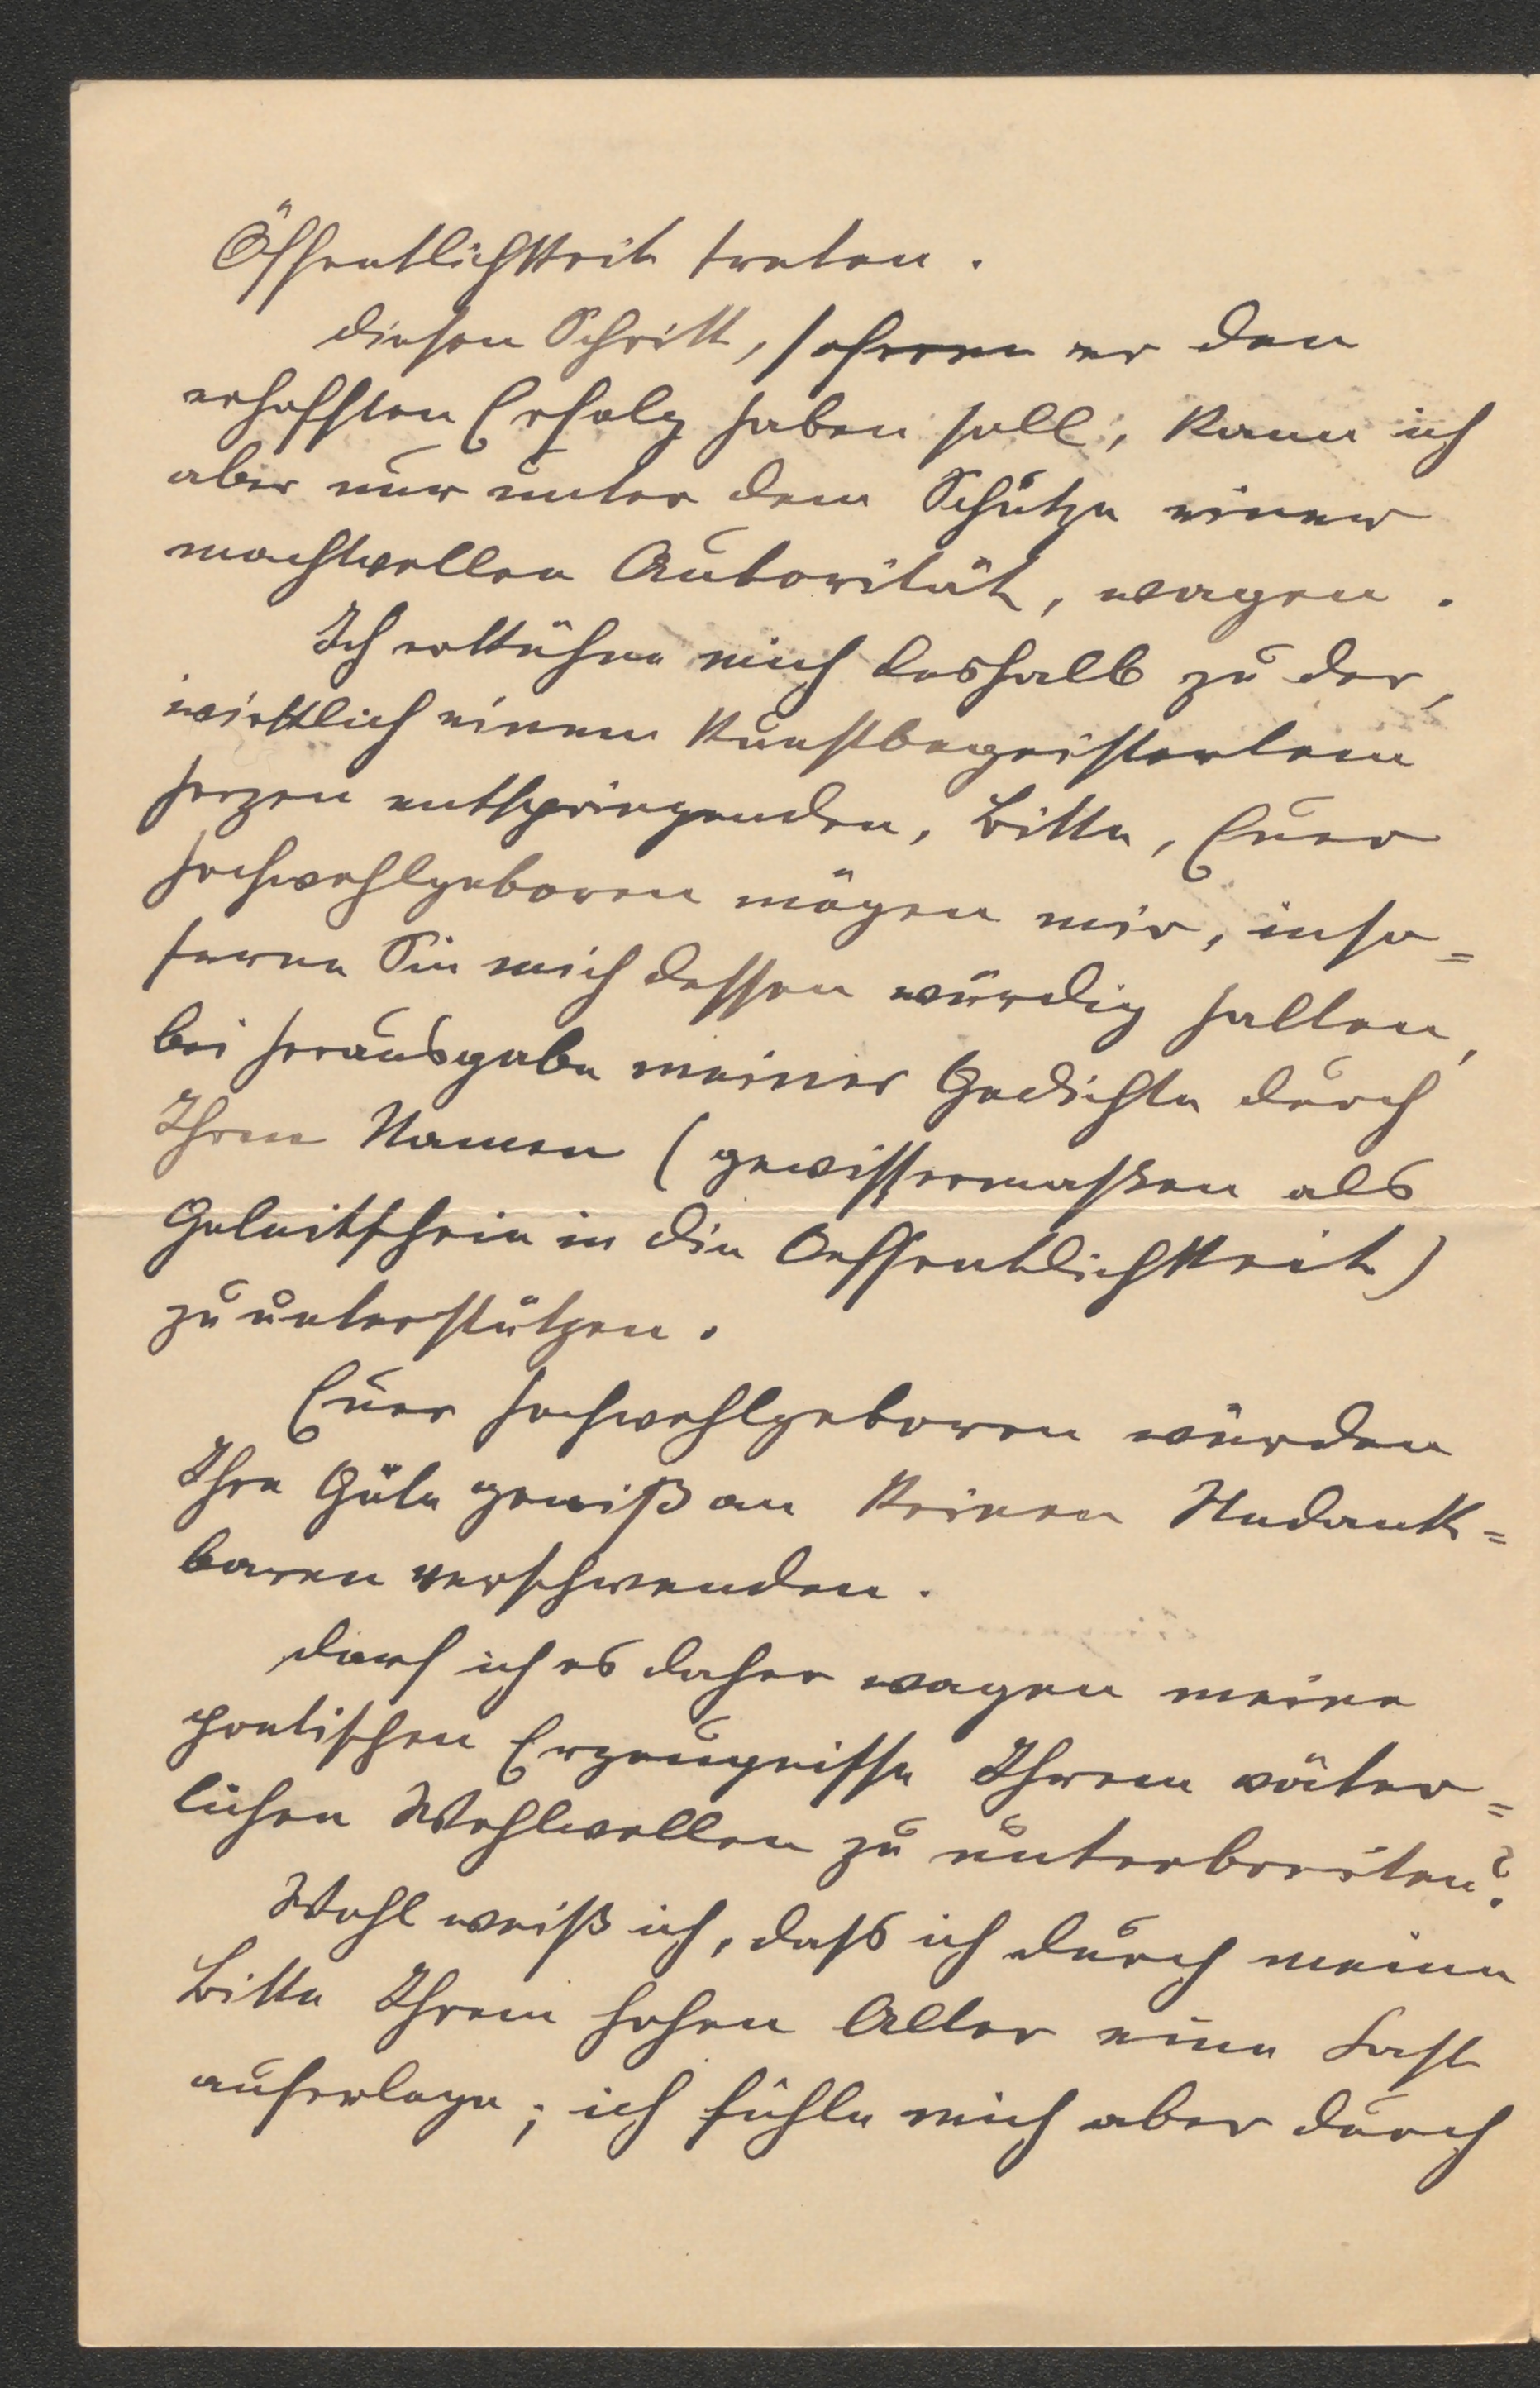 Öffentlichkeit treten.
Diesen Schritt, soferne er den
erhofften Erfolg haben soll, kann ich
aber nur unter dem Schutze einer
machtvollen Autorität, wagen.
Ich erkühne mich deshalb zu der,
wirklich einem kunstbegeisterten
Herzen entspringenden, Bitte, Euer
Hochwohlgeboren mögen mir, inso=
ferne Sie mich dessen würdig halten,
bei Herausgabe meiner Gedichte durch
Ihren Namen (gewissermaßen als
Geleitschein in die Oeffentlichkeit)
zu unterstützen.
Euer Hochwohlgeboren würden
Ihre Güte gewiß an keinen Undank=
baren verschwenden.
Darf ich es daher wagen meine
poetischen Erzeugnisse Ihrem väter=
lichen Wohlwollen zu unterbreiten?
Wohl weiß ich, dass ich durch meine
Bitte Ihrem hohen Alter eine Last
auferlege; ich fühle mich aber durch